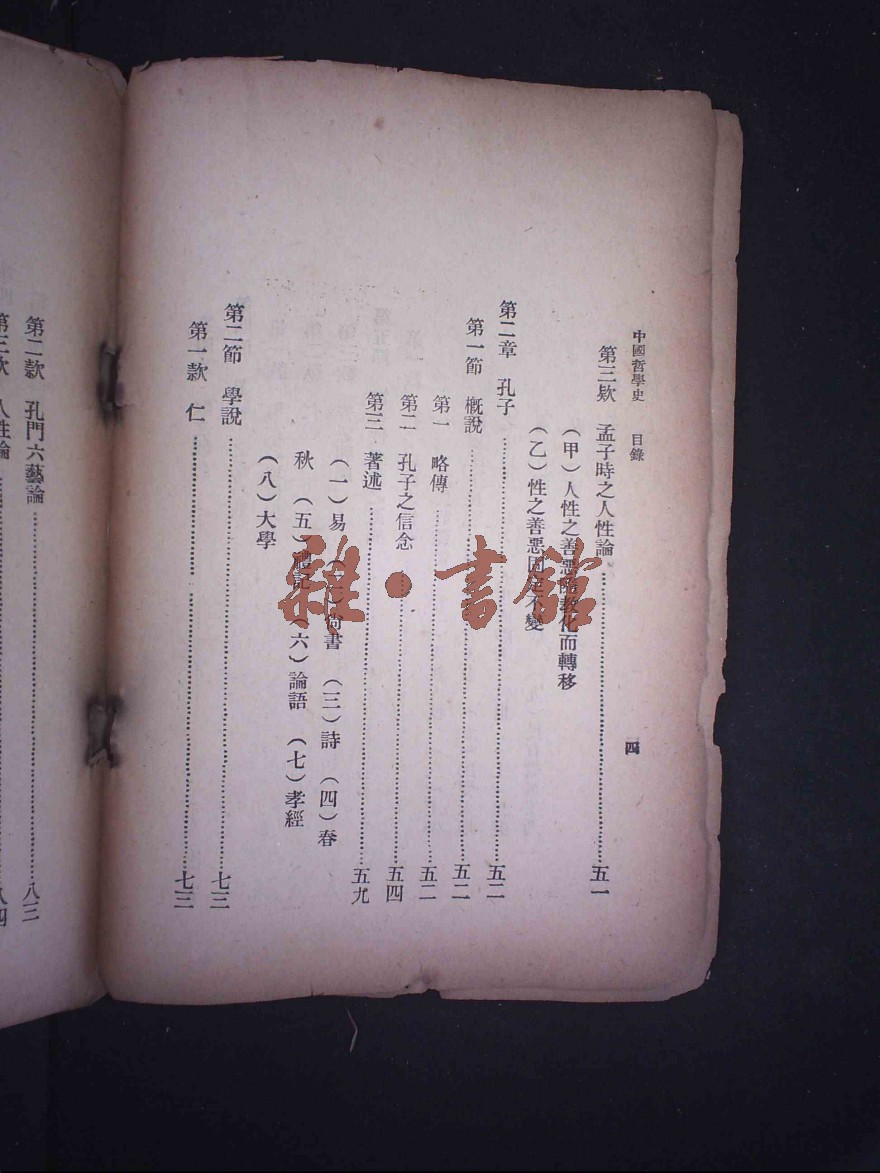 中國哲學史 目錄 四
第三欵 孟子時之人性論 五一
(甲)人性之善惡隨教化而轉移
(乙)性之善惡固定不變
第二章 孔子 五二
第一節 概說 五二
第一 略傳 五二
第二 孔子之信念 五四
第三 著述 五九
(一)易 (二)尚書 (三)詩 (四)春
秋 (五)禮記 (六)論語 (七)孝經
(八)大學
第二節 學說 七三
第一款 仁 七三
第二款 孔門六藝論 八三
第三款 人性論 八四
雜·書館